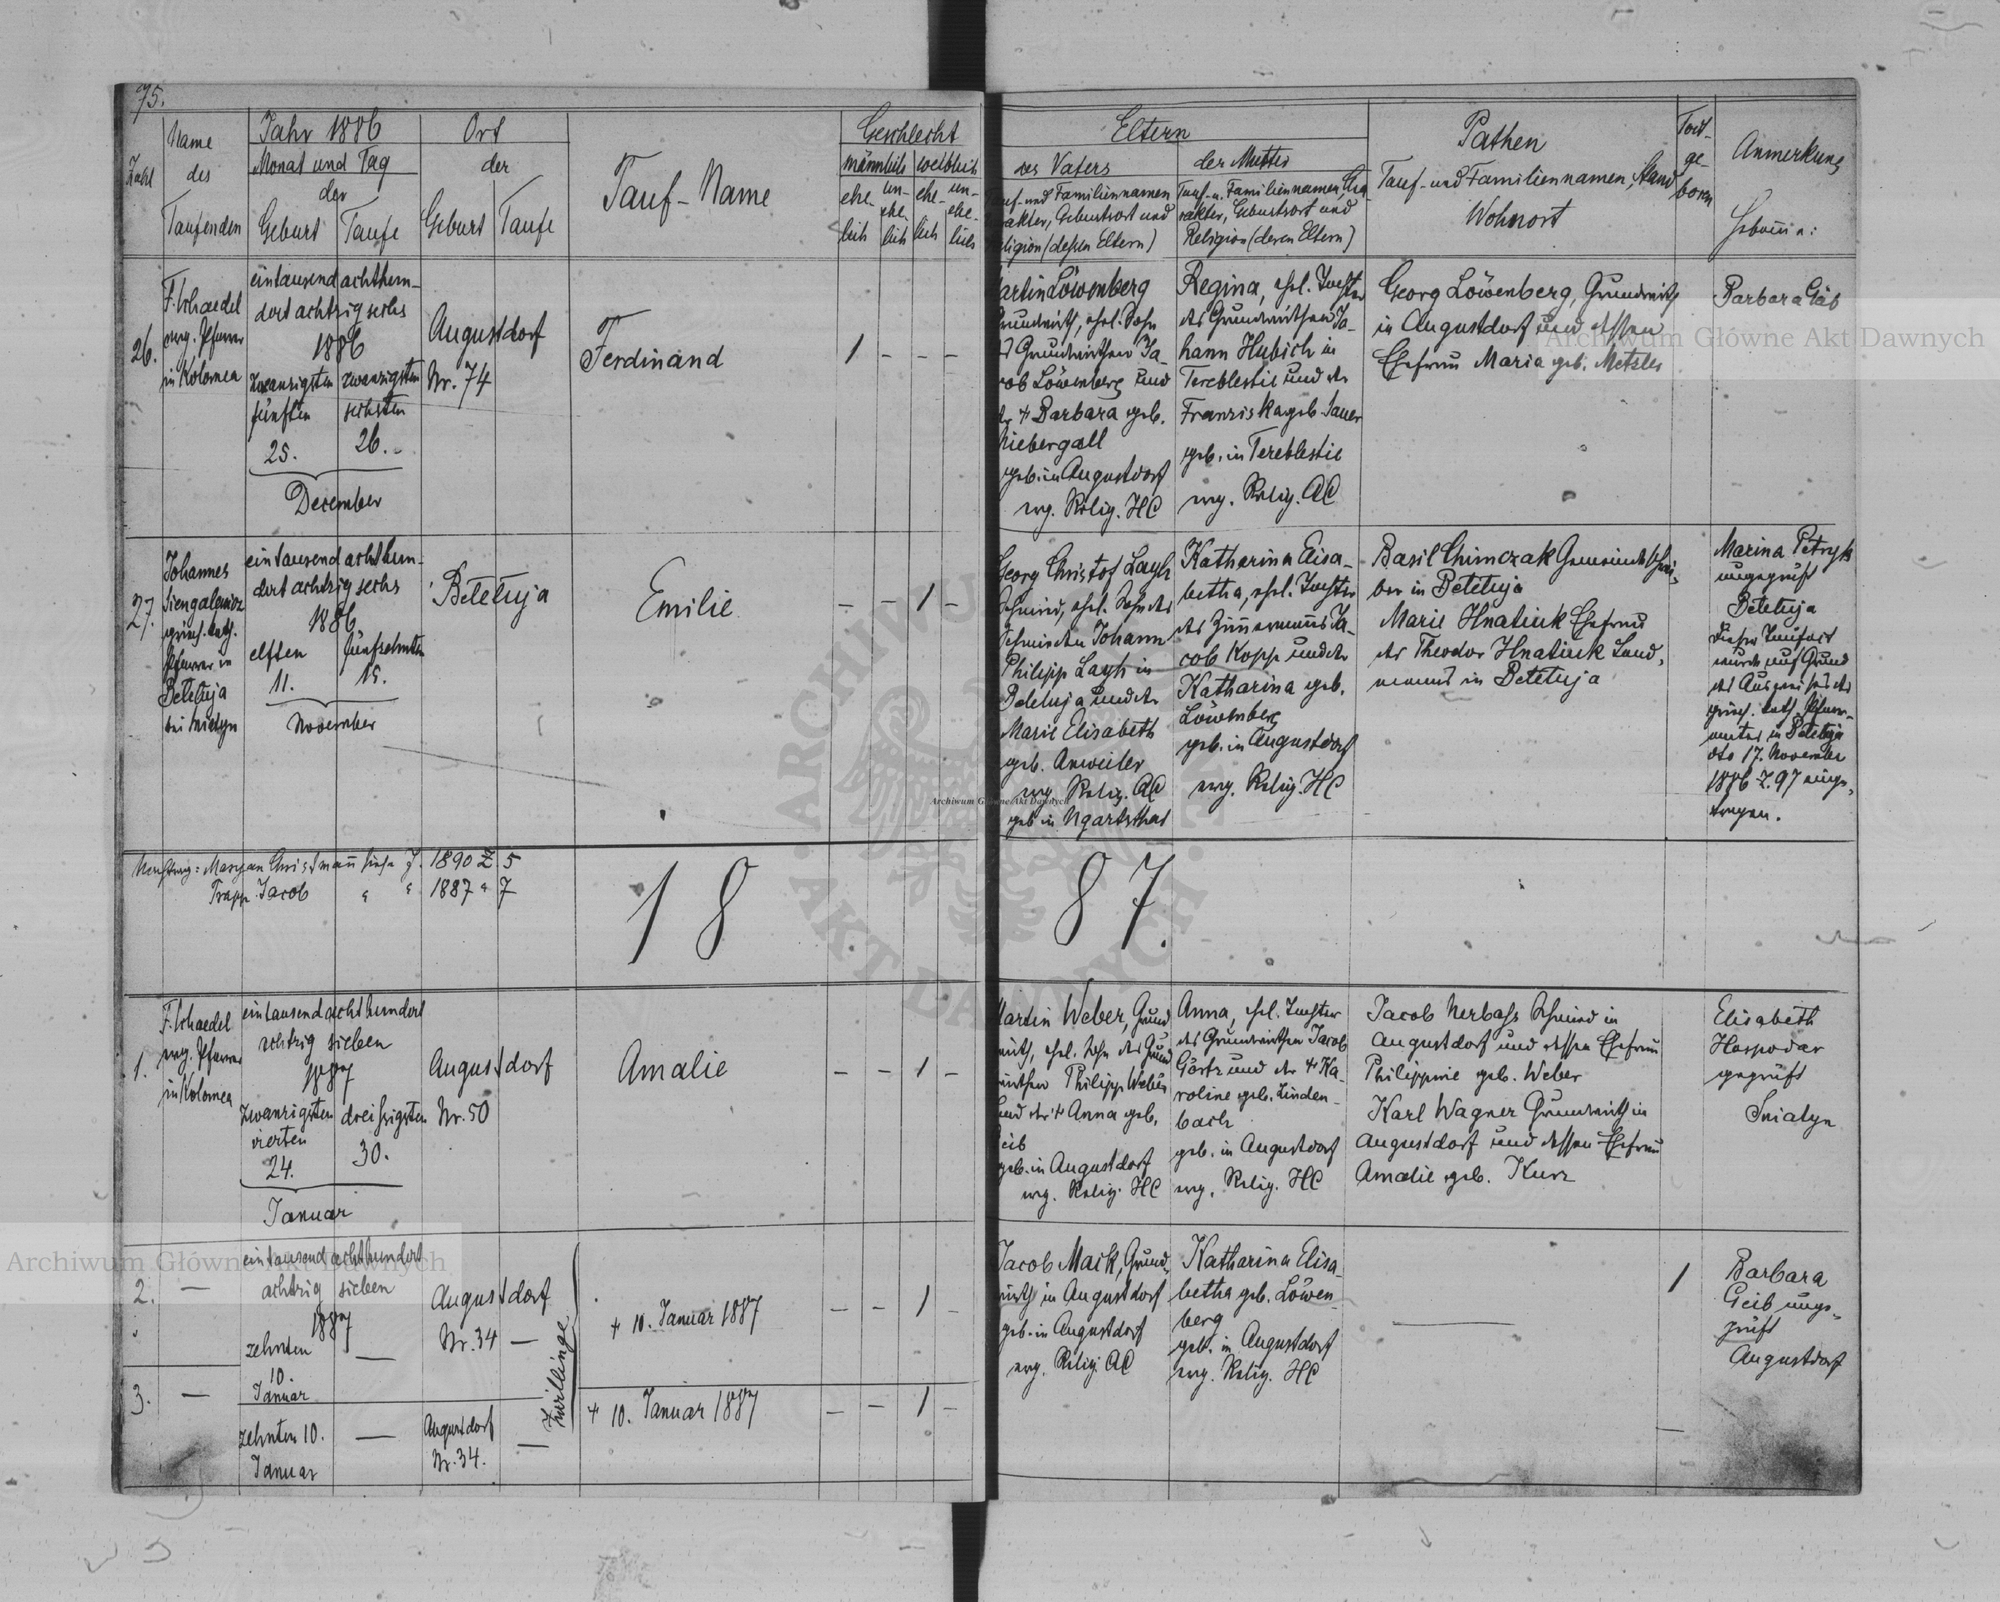 75.
Zahl
Name
des
Taufenden
Jahr 1886
Monat und Tag
der
Geburt
Taufe
Ort
der
Geburt
Taufe
Tauf-Name
Geschlecht
männlich
weiblich
ehe-
lich
un-
ehe-
lich
ehe-
lich
un-
ehe-
lich
Eltern
des Vaters
auf- und Familiennamen
rakter, Geburtsort und
eligion (dessen Eltern)
der Mutter
Tauf- u. Familiennamen, Cha-
rakter, Geburtsort und
Religion (deren Eltern)
Pathen
Tauf- und Familiennamen, Stand
Wohnort
Todt-
ge-
boren
Anmerkung
26.
F. Schaedel
evg. Pfarrer
in Kolomea
eintausend achthun-
dert achtzig sechs
1886
zwanzigsten
fünften
25.
zwanzigsten
sechsten
26.
December
Augustdorf
Nr. 74
Ferdinand
1 - - -
artin Löwenberg
rundwirth, ehl. Sohn
s Grundwirthen Ja-
cob Löwenberg und
der + Barbara geb.
Niebergall
geb. in Augustdorf
evg. Relig. HC
Regina, ehl. Tochter
des Grundwirthen Jo-
hann Hubich in
Tereblestie und der
Franziska geb. Sauer
geb. in Tereblestie
evg. Relig. AC
Georg Löwenberg, Grundwirth
in Augustdorf und dessen
Ehefrau Maria geb. Metzler
Barbara Geib
27.
Johannes
Siengalewicz
griech. kath.
Pfarrer in
Beletuja
bei Sniatyn
eintausend achthun-
dert achtzig sechs
1886
elften
11.
fünfzehnten
15.
November
Beletuja
Emilie
- - 1 -
Georg Christof Layh
Schmied, ehl. Sohn des
Schmieden Johann
Philipp Layh in
Beletuja und der
Marie Elisabeth
geb. Anweiler
evg. Relig. AC
geb in Ugartsthal
Katharina Elisa-
betha, ehl. Tochter
des Zimmermanns Ja-
cob Kopp und der
Katharina geb.
Löwenberg
geb. in Augustdorf
evg. Relig. HC
Basil Chimczak Gemeindeschrei-
ber in Beletuja
Marie Hnatiuk Ehefrau
des Theodor Hnatiuk Land-
manns in Beletuja
Marina Petryk
ungeprüft
Beletuja
Dieser Taufact
wurde auf Grund
des Ausweises des
griech. kath. Pfarr-
amtes in Beletuja
dto 17. November
1886 Z. 97 einge-
tragen.
Nachtrag: Maryan Christmann siehe J. 1890 Z. 5
Trapp Jacob " " 1887 " 7
1887.
1.
F. Schaedel
evg. Pfarrer
in Kolomea
eintausend achthundert
achtzig sieben
1887
zwanzigsten
vierten
24.
dreißigsten
30.
Januar
Augustdorf
Nr. 50
Amalie
- - 1 -
Martin Weber, Grund
wirth, ehl. Sohn des Grund
wirthen Philipp Weber
und der + Anna geb.
Geib
geb. in Augustdorf
evg. Relig. HC
Anna, ehl. Tochter
des Grundwirthen Jacob
Görtz und der + Ka-
roline geb. Linden-
bach
geb. in Augustdorf
evg. Relig. HC
Jacob Nerbass Schmied in
Augustdorf und dessen Ehefrau
Philippine geb. Weber
Karl Wagner Grundwirth in
Augustdorf und dessen Ehefrau
Amalie geb. Kurz
Elisabeth
Hospodar
geprüft
Sniatyn
2.
—
eintausend achthundert
achtzig sieben
1887
zehnten
10.
Januar
—
Augustdorf
Nr. 34 —
Zwillinge
+ 10. Januar 1887
- - 1 -
Jacob Mack, Grund-
wirth in Augustdorf
geb. in Augustdorf
evg. Relig. AC
Katharina Elisa-
betha geb. Löwen-
berg
geb. in Augustdorf
evg. Relig. HC
—
1
Barbara
Geib unge-
prüft
Augustdorf
3.
—
zehnten 10.
Januar
—
Augustdorf
Nr. 34.
—
+ 10. Januar 1887
- - 1 -
Archiwum Główne Akt Dawnych
Archiwum Główne Akt Dawnych
Archiwum Główne Akt Dawnych